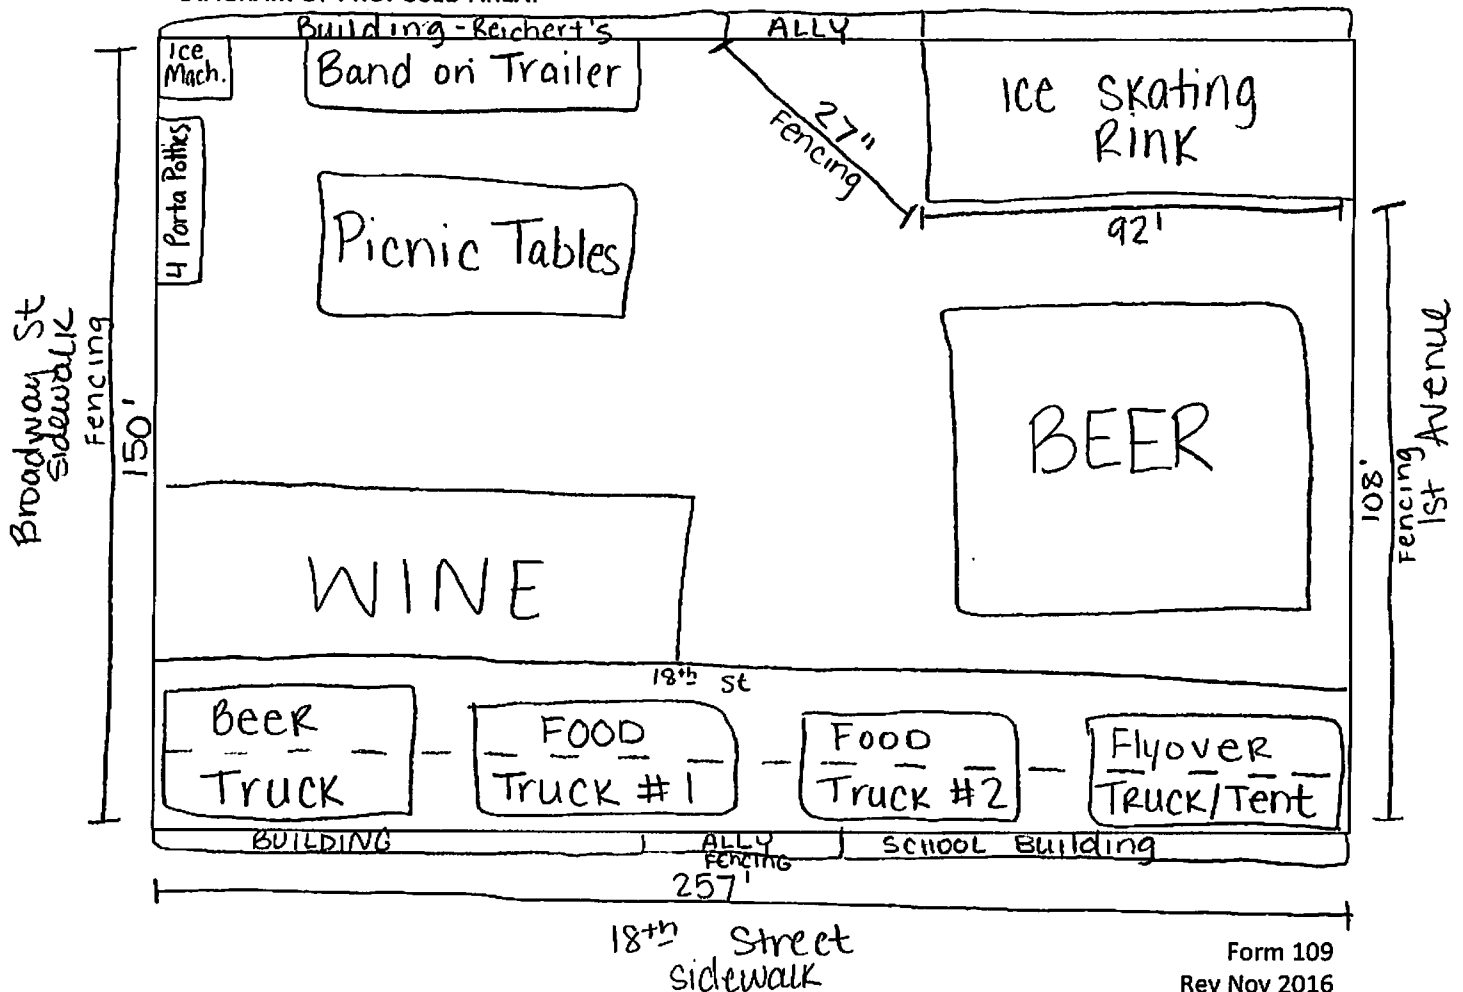 Building - Reichert's
ALLY
Ice
Mach.
Band on Trailer
Ice Skating
Rink
27"
Fencing
4 Porta Potties
Picnic Tables
92'
Broadway St
Sidewalk
Fencing
150'
BEER
108'
Fencing
1st Avenue
WINE
18th St
Beer
Truck
FOOD
Truck #1
Food
Truck #2
Flyover
Truck/Tent
BUILDING
ALLY
Fencing
SCHOOL Building
257'
18th Street
Sidewalk
Form 109
Rev Nov 2016